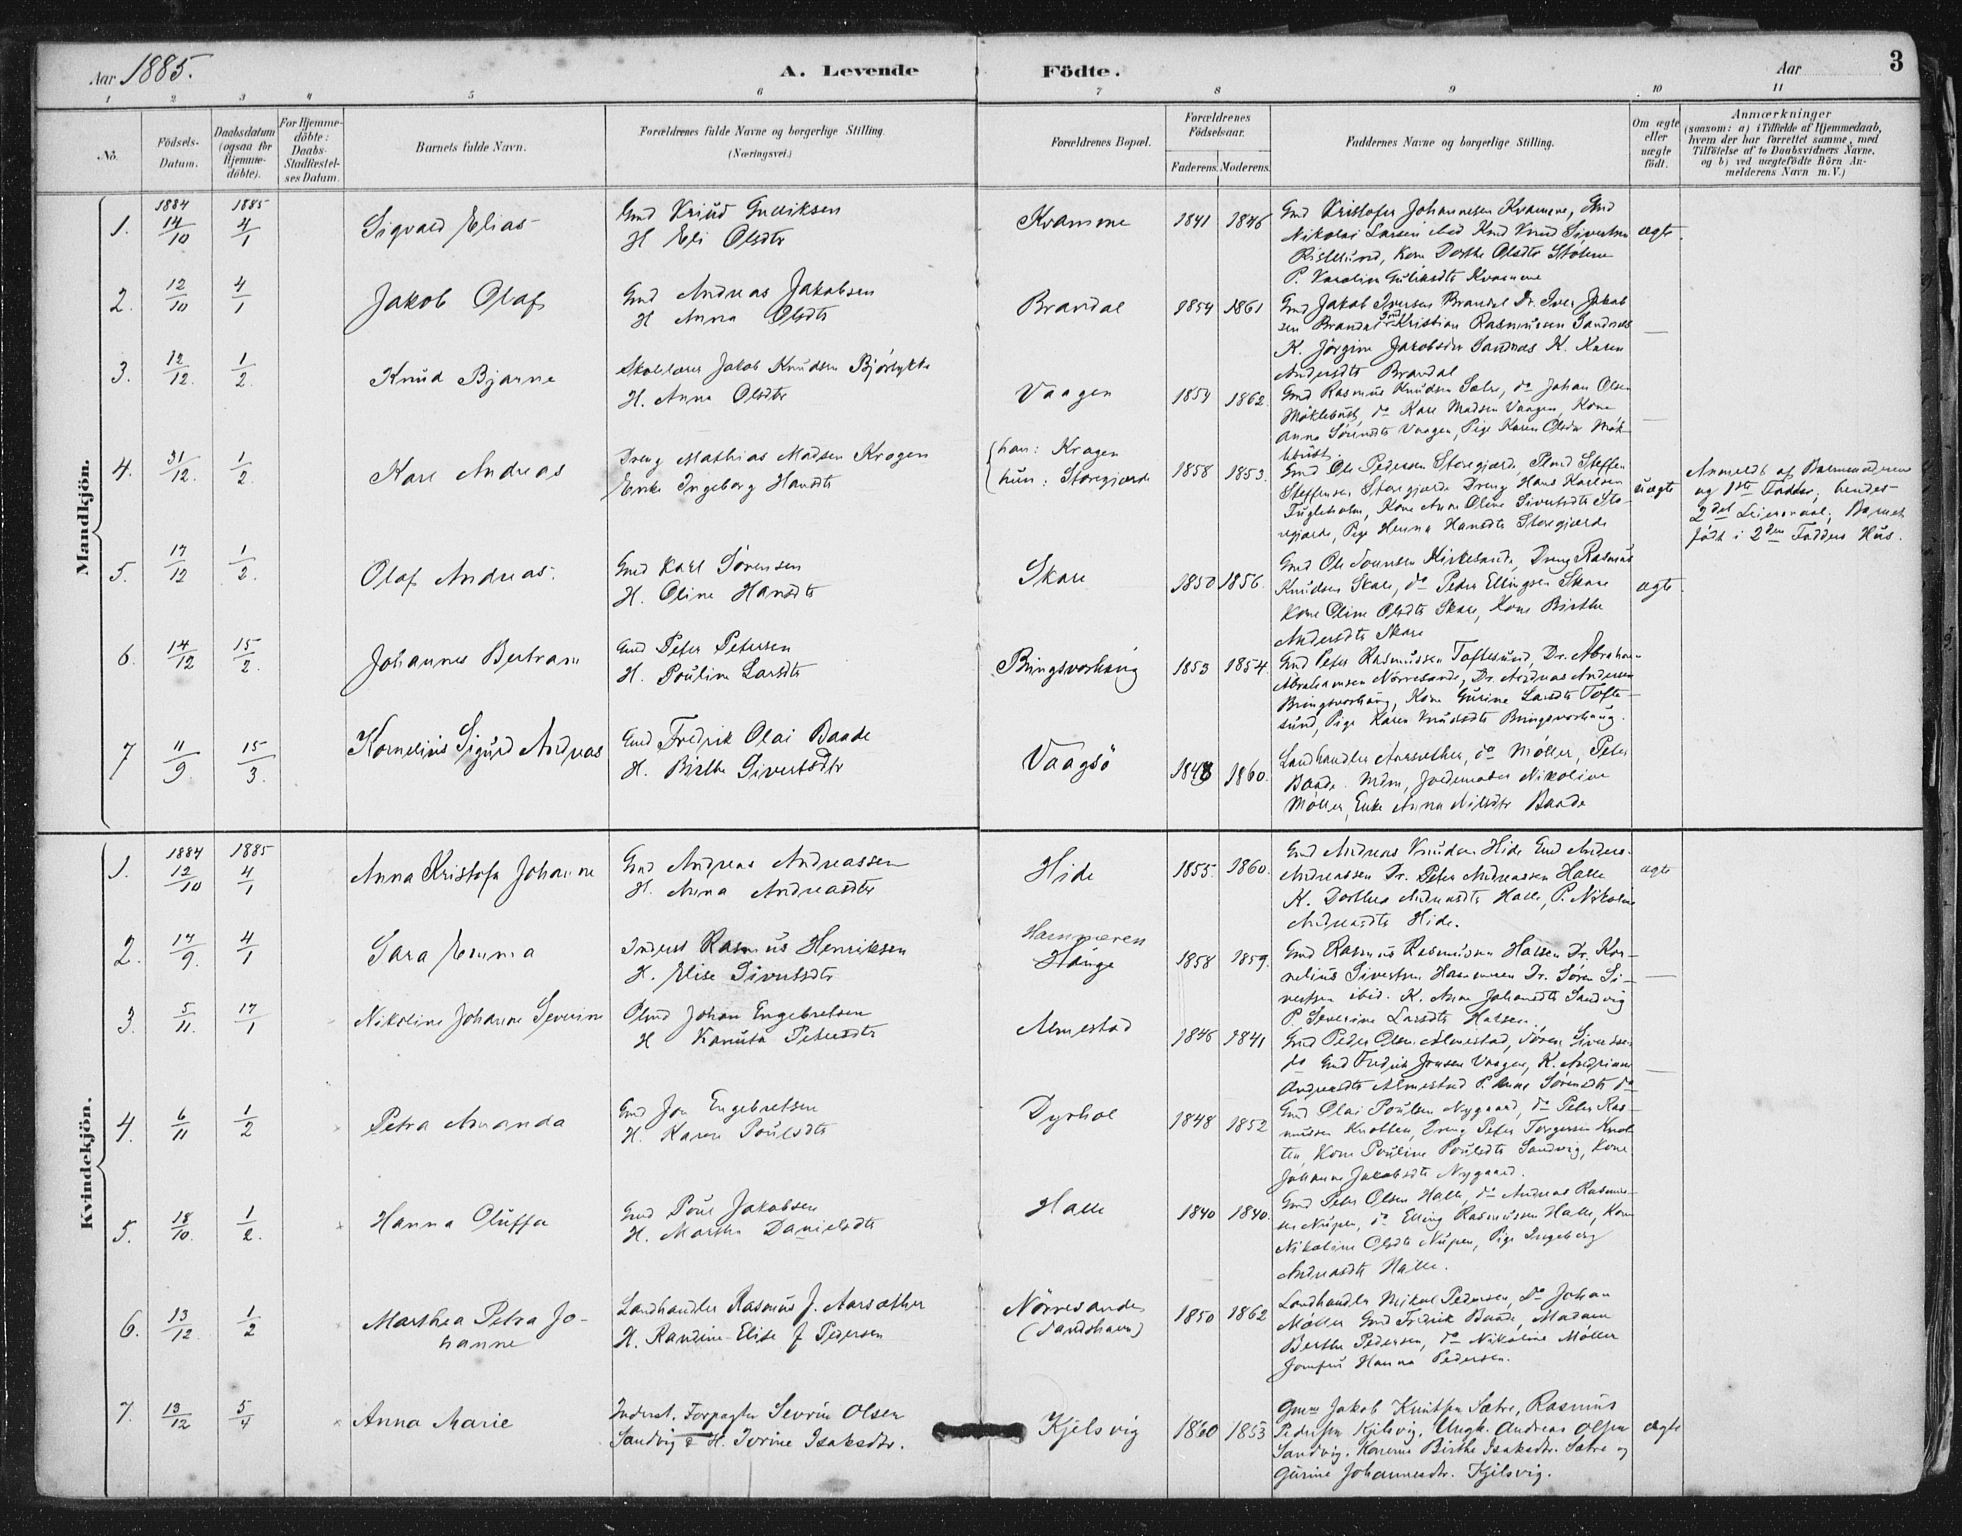 Aar 1885.
A. Levende Födte.
Aar
3
1 2 3 4 5 6 7 8 9 10 11
No.
Födsels-
Datum.
Daabsdatum
(ogsaa for
Hjemme-
döbte).
For Hjemme-
döbte:
Daabs-
Stadfestel-
ses Datum.
Barnets fulde Navn.
Forældrenes fulde Navne og borgerlige Stilling.
(Næringsvei.)
Forældrenes Bopæl.
Forældrenes
Födselsaar.
Faderens. Moderens.
Faddernes Navne og borgerlige Stilling.
Om ægte
eller
uægte
født.
Anmærkninger
(saasom: a) i Tilfælde af Hjemmedaab,
hvem der har forrettet samme, med
Tilföielse af to Daabsvidners Navne,
og b) ved uægtefödte Börn An-
melderens Navn m. V.)
Mandkjön.
1884 1885
1. 14/10 4/1 Sigvald Elias
Gmd Knud Gulliksen
H Eli Olsdtr
Kvamme 1841 1846
Gmd Kristofer Johannesen Kvamme, Gmd
Nikolai Larsen ibid Knud Sivertsen
Ristesund, Kone Dorthe Olsdtr
P. Karolina Gulliksdtr Kvamme
ægte.
2. 12/10 4/1 Jakob Olaf
Gmd Andreas Jakobsen
H Anna Olsdtr
Brandal 1854 1861
Gmd Jakob Iversen Brandal Dr. Iver Jakob
sen Brandal Gmd Kristian Rasmussen Sandnes
K. Jörgine Jacobsdtr Sandnes K. Karen
Andersdtr Brandal
3. 12/12. 1/2. Knud Bjarne
Skolelærer Jakob Knudsen Bjørlykke
H. Anna Olsdtr
Vaagen 1854 1862.
Gmd Rasmus Knudsen Sæter, do Johan Olsen
Möklebust, do Kare Madsen Vaagen, Kone
Anna Vaagen, Pige Karen Olsdtr Mök-
lebust.
4. 31/12. 1/2. Karl Andreas
Dreng Mathias Madsen Kragen
Enke Ingeborg Hansdtr
han: Kragen
hun: Storegjærde
1858 1853.
Gmd Ole Pedersen Storegjærde, Steffen
Steffensen Storegjærde Dreng Hans Karlsen
Fugleholm, Kone Anne Oline Sivertsdtr Sto-
regjærde, Pige Hanna Hansdtr Storegjærde
uægte
Anmeldt af Barnemoderen
og 1ste Fadder; hendes
2det Leiermaal; Barnet
født i 2den Fadders Hus.
5. 17/12 1/2. Olaf Andreas.
Gmd Karl Sørensen
H. Oline Hansdtr
Skare 1850 1856.
Gmd Ole Kirkesund, Dreng Rasmus
Knudsen Skare, do Peder Ellingsen Skare
Kone Oline Olsdtr Skare, Kone Birthe
Andersdtr Skare
ægte.
6. 14/12 15/2. Johannes Bertram
Gmd Peter Petersen
H. Pouline Larsdtr
Bringsvorhaug 1853 1854.
Gmd Peter Rasmussen Toftesund, Dr. Abraham
Abrahamsen Nörresande, Dr. Andreas Andersen
Bringsvorhaug, Kone Gurine Larsdtr Tofte-
sund, Pige Karen Knudsdtr Bringsvorhaug.
7 11/9. 15/3. Kornelius Sigurd Andreas
Gmd Fredrik Olai Baade
H. Birthe Sivertsdtr
Vaagsö 1848 1860.
Landhandler Aarsether, do Møller, Peter
Baade. Mdm, Jordemoder Nikoline
Møller, Enke Anna Nilsdtr Baade
Kvindekjön.
1884 1885
1. 12/10 4/1 Anna Kristofa Johanne
Gmd Andreas Andreassen
H. Anna Andreasdtr
Hide 1855. 1860.
Gmd Andreas Knudsen Hide Gmd Anders
Andreassen Dr. Peter Andreassen Halle
K. Dorthea Andreasdtr Halle, P. Nikoline
Andreasdtr Hide.
ægte
2. 17/9. 4/1 Sara Emma
Inderst Rasmus Henriksen
H. Elise Sivertsdtr
Hammeren
Hauge
1858 1859.
Gmd Rasmus Rasmussen Halsen Dr. Kor-
nelius Sivertsen Hammeren Dr. Søren Si-
vertsen ibid. K. Anne Johansdtr Sandvig
P Severine Larsdtr Halsen.
3. 5/11. 17/1 Nikoline Johanne Severine
Plmd Johan Engebretsen
H Kanuta Petersdtr
Almestad 1846 1841
Gmd Peder Olsen Almestad, Søren Sivertsen
do Gmd Fredrik Jonsen Vaagen, K. Andriane
Andreasdtr Almestad P. Anne Sørensdtr do
4. 6/11 1/2 Petra Amanda
Gmd Jon Engebretsen
H. Karen Poulsdtr
Dyrhol 1848 1852
Gmd Olai Poulsen Nygaard, do Peter Ras-
mussen Knotten, Dreng Peter Torgersen Knot-
ten, Kone Pouline Poulsdtr Sandvig, Kone
Johanne Jakobsdtr Nygaard.
5. 18/10. 1/2. Hanna Oluffa
Gmd Poul Jakobsen
H. Martha Danielsdtr
Halle 1840 1840.
Gmd Peter Olsen Halle, do Andreas Rasmus-
sen Nupen, do Elling Rasmussen Halle, Kone
Nikoline Olsdtr Nupen, Pige Ingeborg
Andreasdtr Halle.
6. 13/12. 1/2 Marthea Petra Jo-
hanne
Landhandler Rasmus J. Aarsæther
H. Randine Elise f Pedersen
Nörresande
(Sandshavn)
1850 1862
Landhandler Mikal Pedersen, do Johan
Møller Gmd Fredrik Baade, Madam
Berthe Pedersen, do Nikoline Møller
Jomfru Hanna Pedersen.
7. 13/12 5/4 Anna Marie
Inderst. Forpagter Sevrin Olsen
Sandvig & H. Ivrine Isaksdtr.
Kjelsvig 1860 1853
Gmm Jakob Knutsen Sætre, Rasmus
Pedersen Kjelsvig, Ungk. Andreas Olsen
Sandvig. Konerne Birthe Isaksdtr. Sætre og
Gurine Johannesdtr. Kjelsvig.
ægte